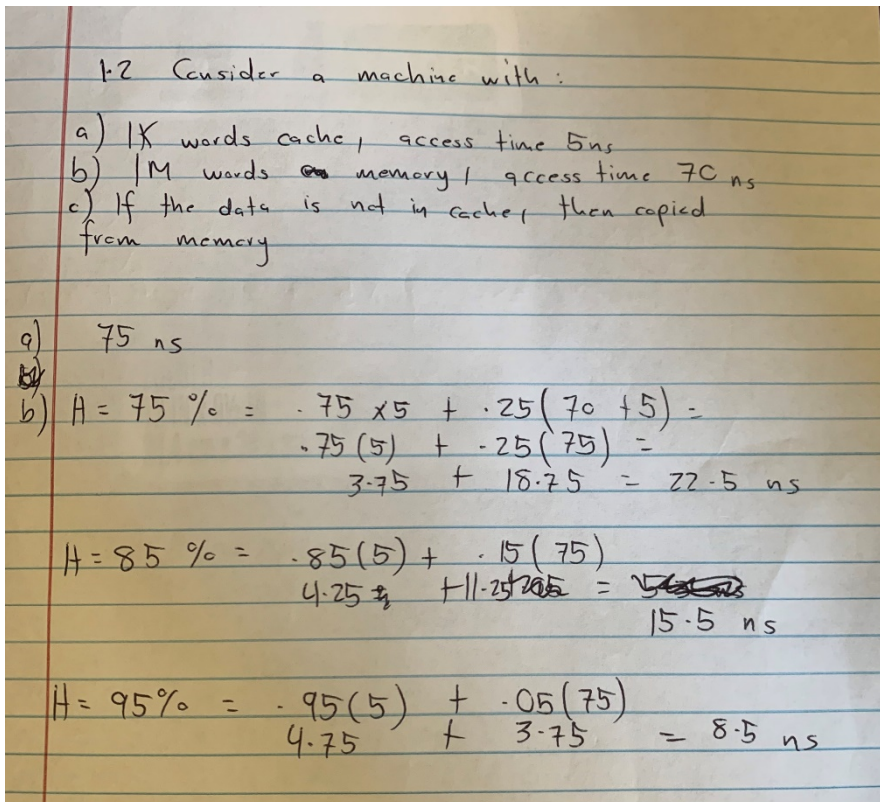 1.2 Consider a machine with :
a) 1K words cache, access time 5ns
b) 1M words memory, access time 70 ns
c) If the data is not in cache, then copied
from memory
a) 75 ns
b) H = 75 % = .75 x5 + .25(70 +5) =
.75(5) + .25(75) =
3.75 + 18.75 = 22.5 ns
H = 85 % = .85(5) + .15(75)
4.25 + 11.25 =
15.5 ns
H = 95% = .95(5) + .05(75)
4.75 + 3.75 = 8.5 ns